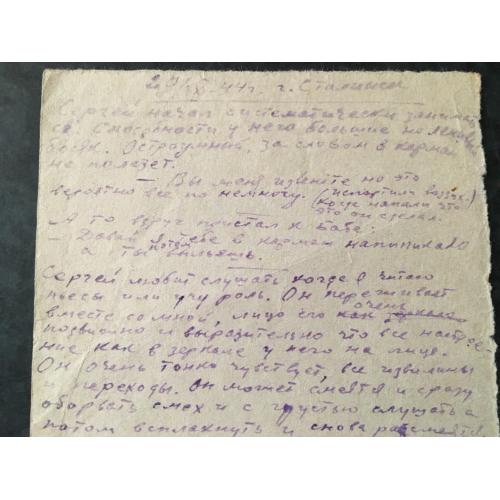 29/IX-44г. г. Сталинск
Сергей начал систематически занимать
ся. Способности у него большие но ленив
боек. Остроумный, за словом в карман
не полезет.
— Вы меня извените но это
вероятно все по немногу. (испортили воздух.)
(Когда напали что
это он сделал.
А то вдруг пристал к бабе:
— Давай я тебе в карман напипикаю
а ты потом выльешь.
Сергей любит слушать когда я читаю
пьесы или учу роль. Он переживает
вместе со мной, лицо его очень
подвижно и выразительно что все настрое-
ние как в зеркале у него на лице.
Он очень тонко чувствует, все извилины
и переходы. Он может смеятся и сразу
оборвать смех и с грустью слушать а
потом всплакнуть и снова рассмеятся